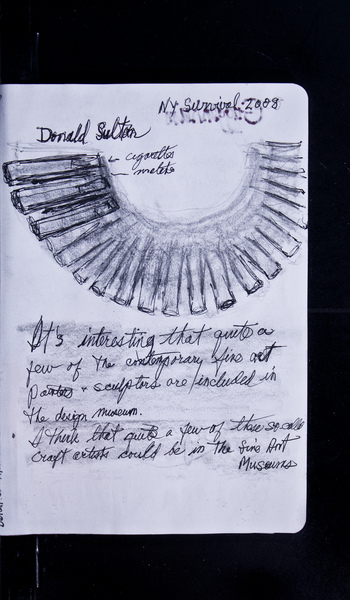 NY Survival 2008
Donald Sultan
cigarettes
matches
It's interesting that quite a
few of the contemporary fine art
painters & sculptors are included in
the design museum.
I think that quite a few of these so calle
craft artists could be in the Fine Art
Museums